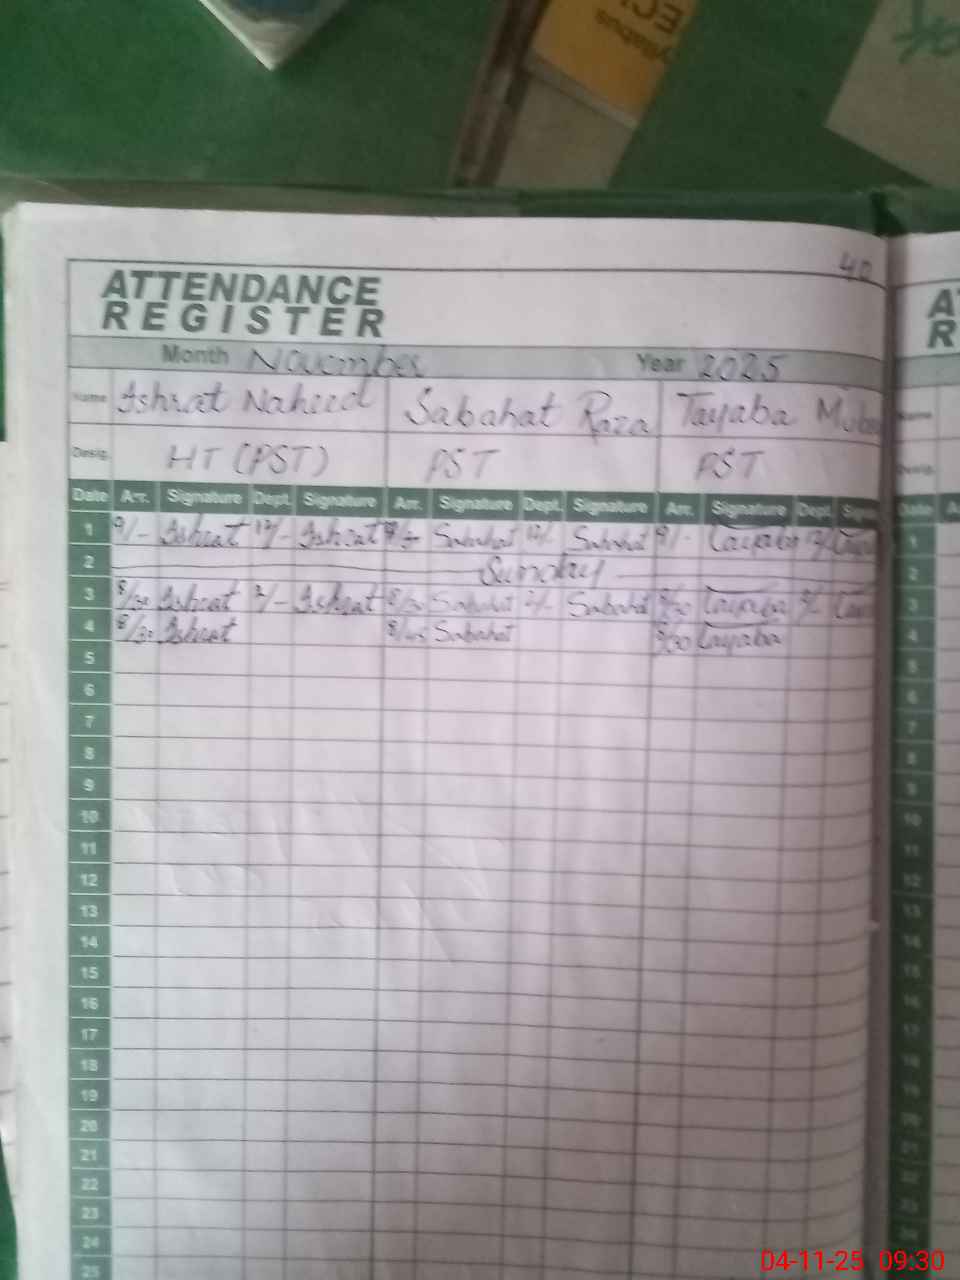 40
ATTENDANCE
REGISTER
Month November Year 2025
Name Ishrat Naheed Sabahat Raza Tayaba
Desig. HT (PST) PST PST
Date Arr. Signature Dept. Signature Arr. Signature Dept. Signature Arr. Signature Dept.
1 9/- Ishrat 12/- Ishrat Sabahat 12/- Sabahat 9/- Tayaba 12/
2 Sunday
3 8/30 Ishrat 2/- Ishrat 8/30 Sabahat 2/- Sabahat 8/30 Tayaba
4 8/30 Ishrat 8/45 Sabahat 8/30 Tayaba
5
6
7
8
9
10
11
12
13
14
15
16
17
18
19
20
21
22
23
24
25
04-11-25 09:30